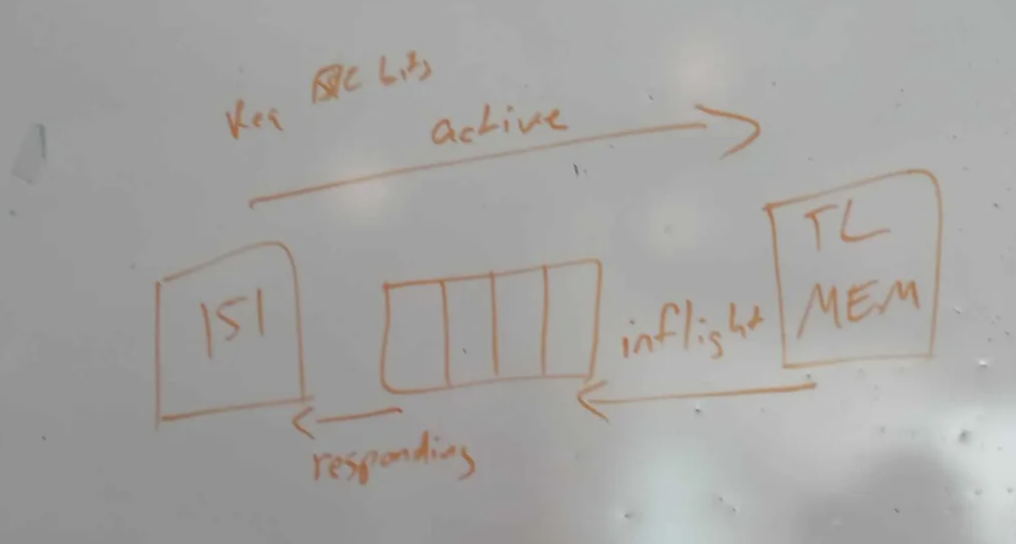 active
ISI
TL
MEM
inflight
responding